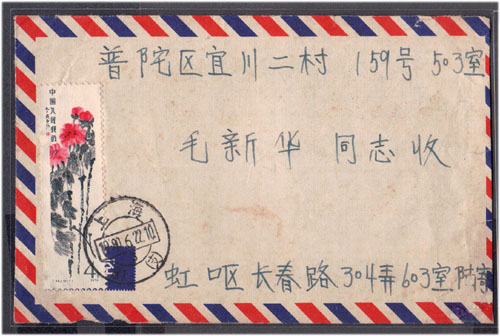 普陀区宜川二村 159号 503室
毛新华 同志收
虹口区长春路304弄603室附寄
中国人民邮政
上海
1980.6.22.10